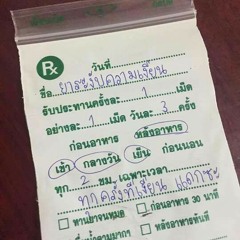 Rx วันที่
ชื่อ ยาระงับความเงี่ยน
รับประทานครั้งละ 1 เม็ด
อย่างละ 1 เม็ด วันละ 3 ครั้ง
ก่อนอาหาร หลังอาหาร
เช้า กลางวัน เย็น ก่อนนอน
ทุก 2 ชม. เฉพาะเวลา
ทุกครั้งที่เงี่ยน แดกซะ
ทานยาจนหมด ก่อนอาหาร 30 นาที
ดื่มน้ำตามมากๆ หลังอาหารทันที